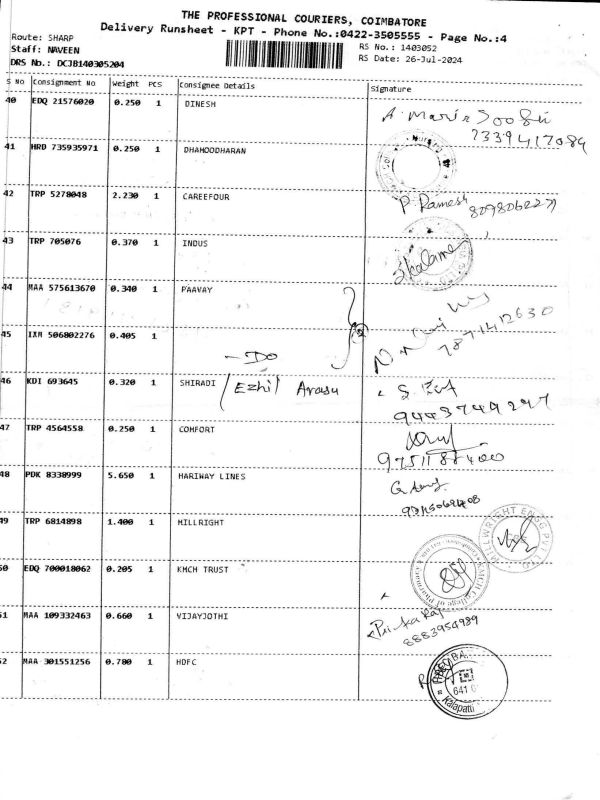 THE PROFESSIONAL COURIERS, COIMBATORE
Delivery Runsheet - KPT - Phone No.:0422-3505555 - Page No.:4
Route: SHARP
Staff: NAVEEN
DRS No.: DCJB140305204
RS No.: 1403052
RS Date: 26-Jul-2024
S No Consignment No Weight PCS Consignee Details Signature
40 EDQ 21576020 0.250 1 DINESH
7339417084
41 HRD 735935971 0.250 1 DHAHODHARAN
42 TRP 5278048 2.230 1 CAREEFOUR P. Ramesh
43 TRP 705076 0.370 1 INDUS
44 MAA 575613670 0.340 1 PAAVAY
45 IXM 506802276 0.405 1
7871412630
- Do
46 KDI 693645 0.320 1 SHIRADI / Ezhil Arasu
9443749247
47 TRP 4564558 0.250 1 COMFORT
48 PDK 8338999 5.650 1 HARIWAY LINES
49 TRP 6814898 1.400 1 MILLRIGHT MILLWRIGHT ENGG PVT LTD
50 EDQ 700018062 0.205 1 KMCH TRUST KMCH College of Pharmacy
51 MAA 109332463 0.660 1 VIJAYJOTHI
8883954989
52 MAA 301551256 0.780 1 HDFC
Kalapatti